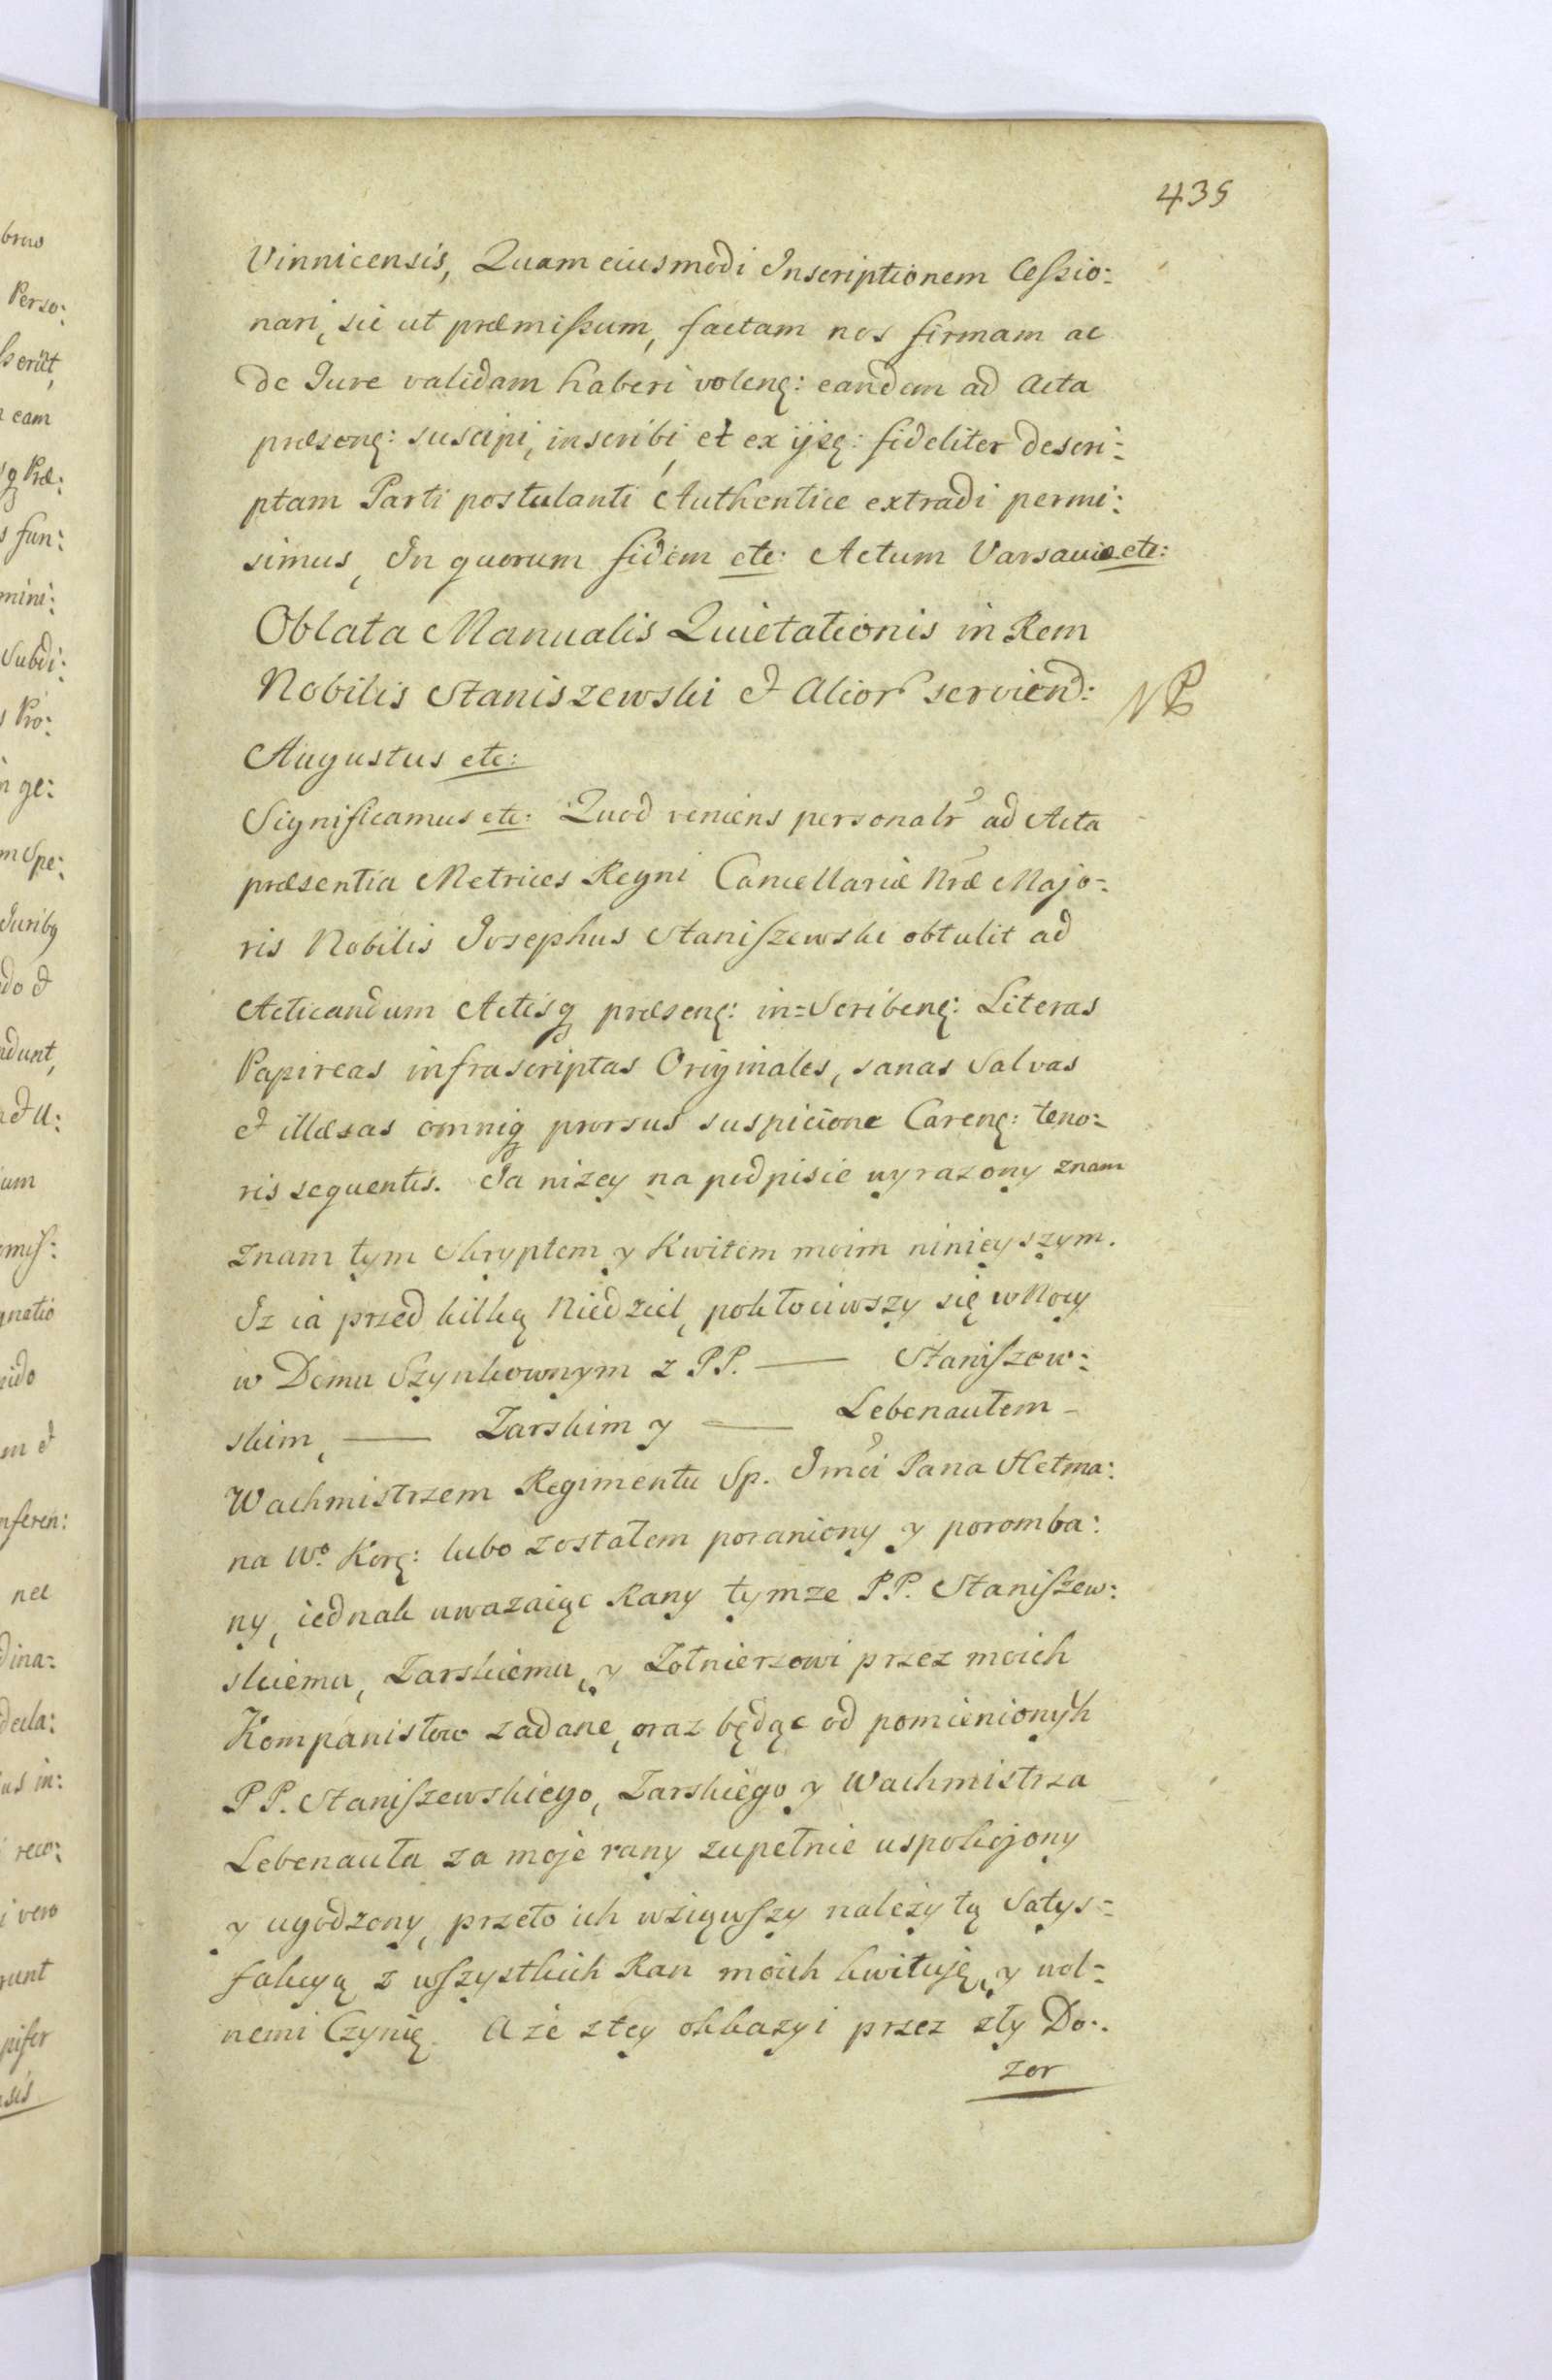 435
Vinnicensis, Quam eiusmodi Inscriptionem Cessio:
nari, sic ut præmissum, factam nos firmam ac
de Iure validam haberi volenꝫ: eandem ad Acta
præsenꝫ: suscipi, inscribi, et ex ijsꝫ: fideliter descri:
ptam Parti postulanti Authentice extradi permi:
simus, In quorum fidem etc: Actum Varsaviæ etc:
Oblata Manualis Quietationis in Rem
Nobilis Staniszewski et Alior serviend:
NB
Augustus etc:
Significamus etc: Quod veniens personalr ad Acta
præsentia Metrices Regni Cancellariæ Nræ Majo:
ris Nobilis Josephus Staniszewski obtulit ad
Acticandum Actisq præsenꝫ: in=Scribenꝫ: Literas
Papireas infrascriptas Originales, sanas Salvas
et illæsas omniq prorsus suspicione Carenꝫ: teno:
ris sequentis. Ja nizey na podpisie wyrazony znam
znam tym Skryptem y Kwitem moim ninieyszym.
Iz ia przed kilką Niedziel, pokłociwszy się w Nocy
w Domu Szynkownym z PP. — Staniszew:
skim, — Zarskim y — Lebenautem
Wachmistrzem Regimentu Sp. Jmći Pana Hetma:
na Wo. Korꝫ: lubo zostałem poraniony y poromba:
ny, iednak uwazaiąc Rany tymze PP. Staniszew:
skiemu, Zarskiemu, y Zołnierzowi przez moich
Kompanistow zadane, oraz będąc od pomienionych
PP. Staniszewskiego, Zarskiego y Wachmistrza
Lebenauta za moje rany zupełnie uspokojony
y ugodzony, przeto ich wziąwszy należytą Satys=
fakcyą z wszystkich Ran moich kwituję, y wol=
nemi Czynię. A że z tey okkazyi przez zły Do:
zor